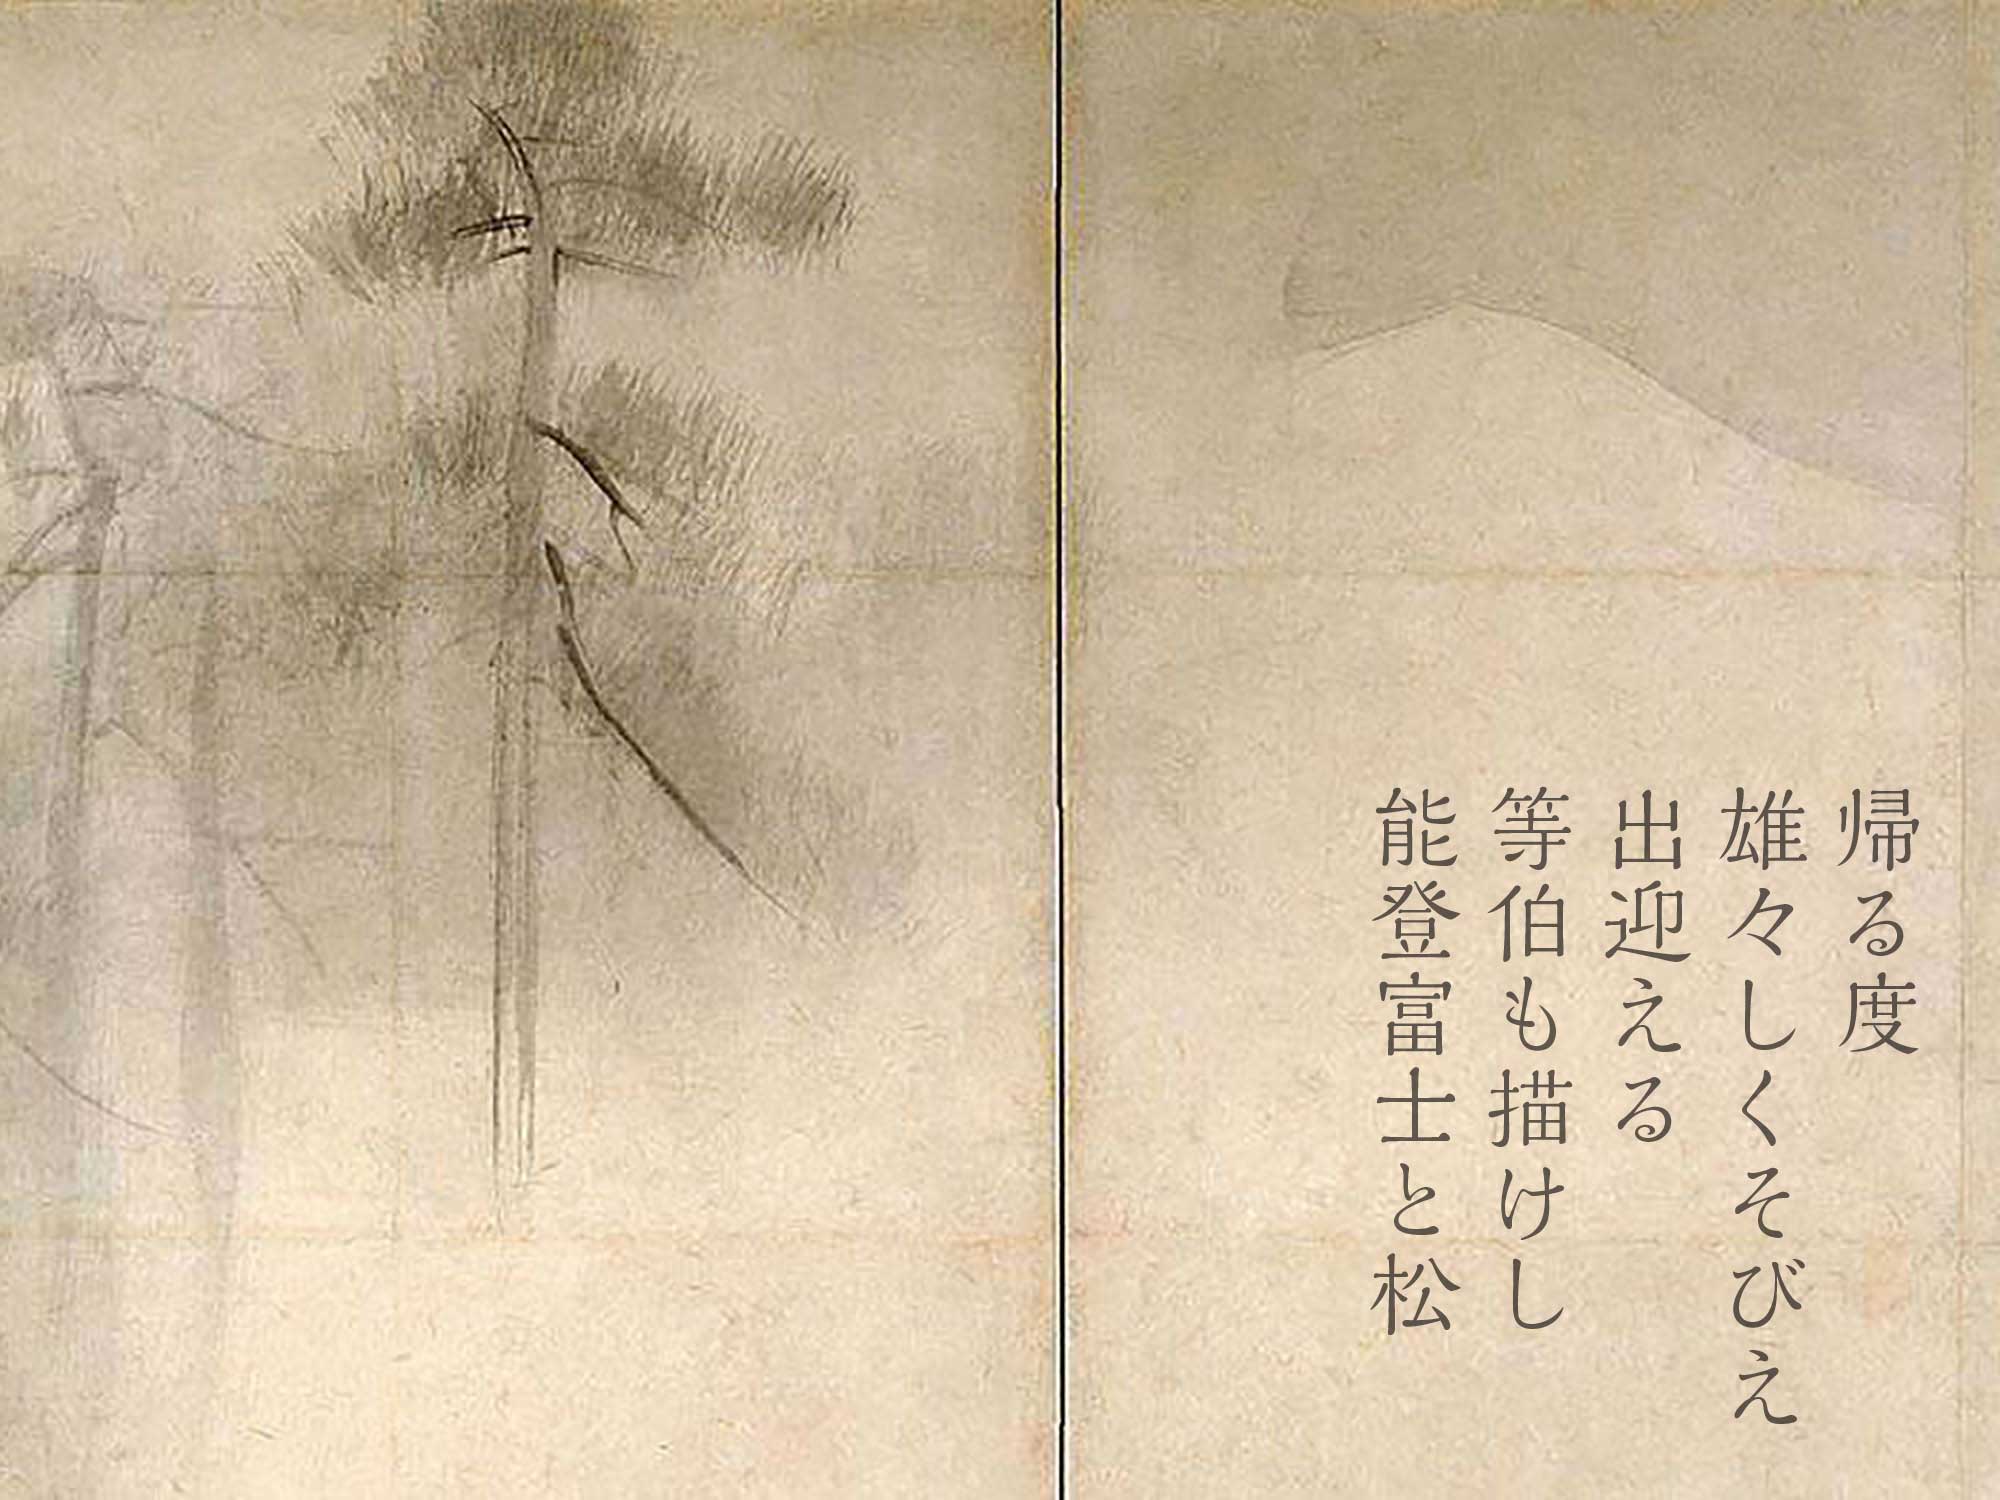 帰る度
雄々しくそびえ
出迎える
等伯も描けし
能登富士と松